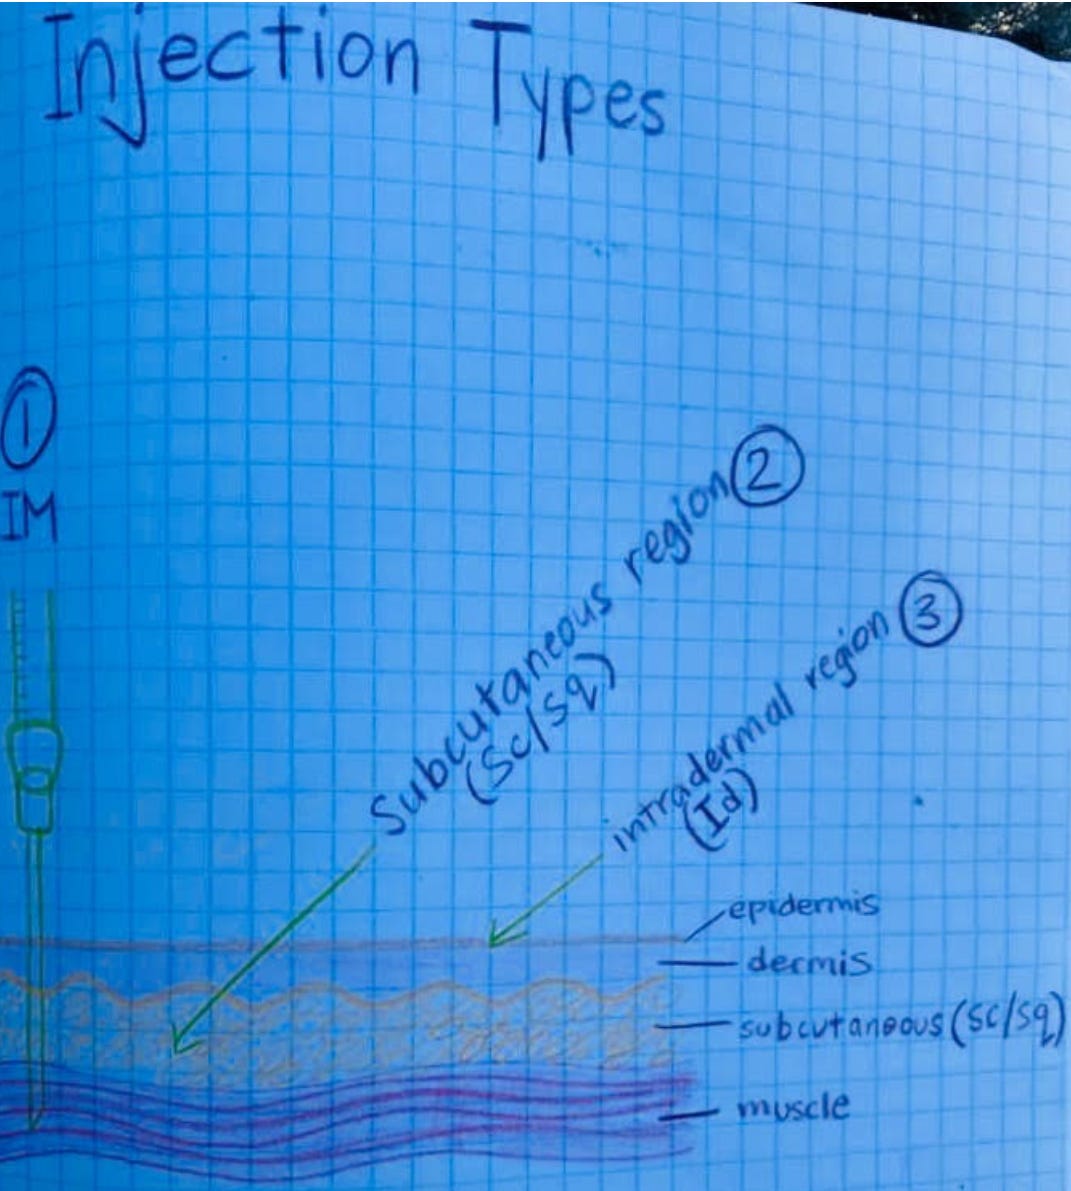 Injection Types
①
IM
Subcutaneous region ②
(Sc/Sq)
intradermal region ③
(Id)
epidermis
dermis
subcutaneous (SC/Sq)
muscle